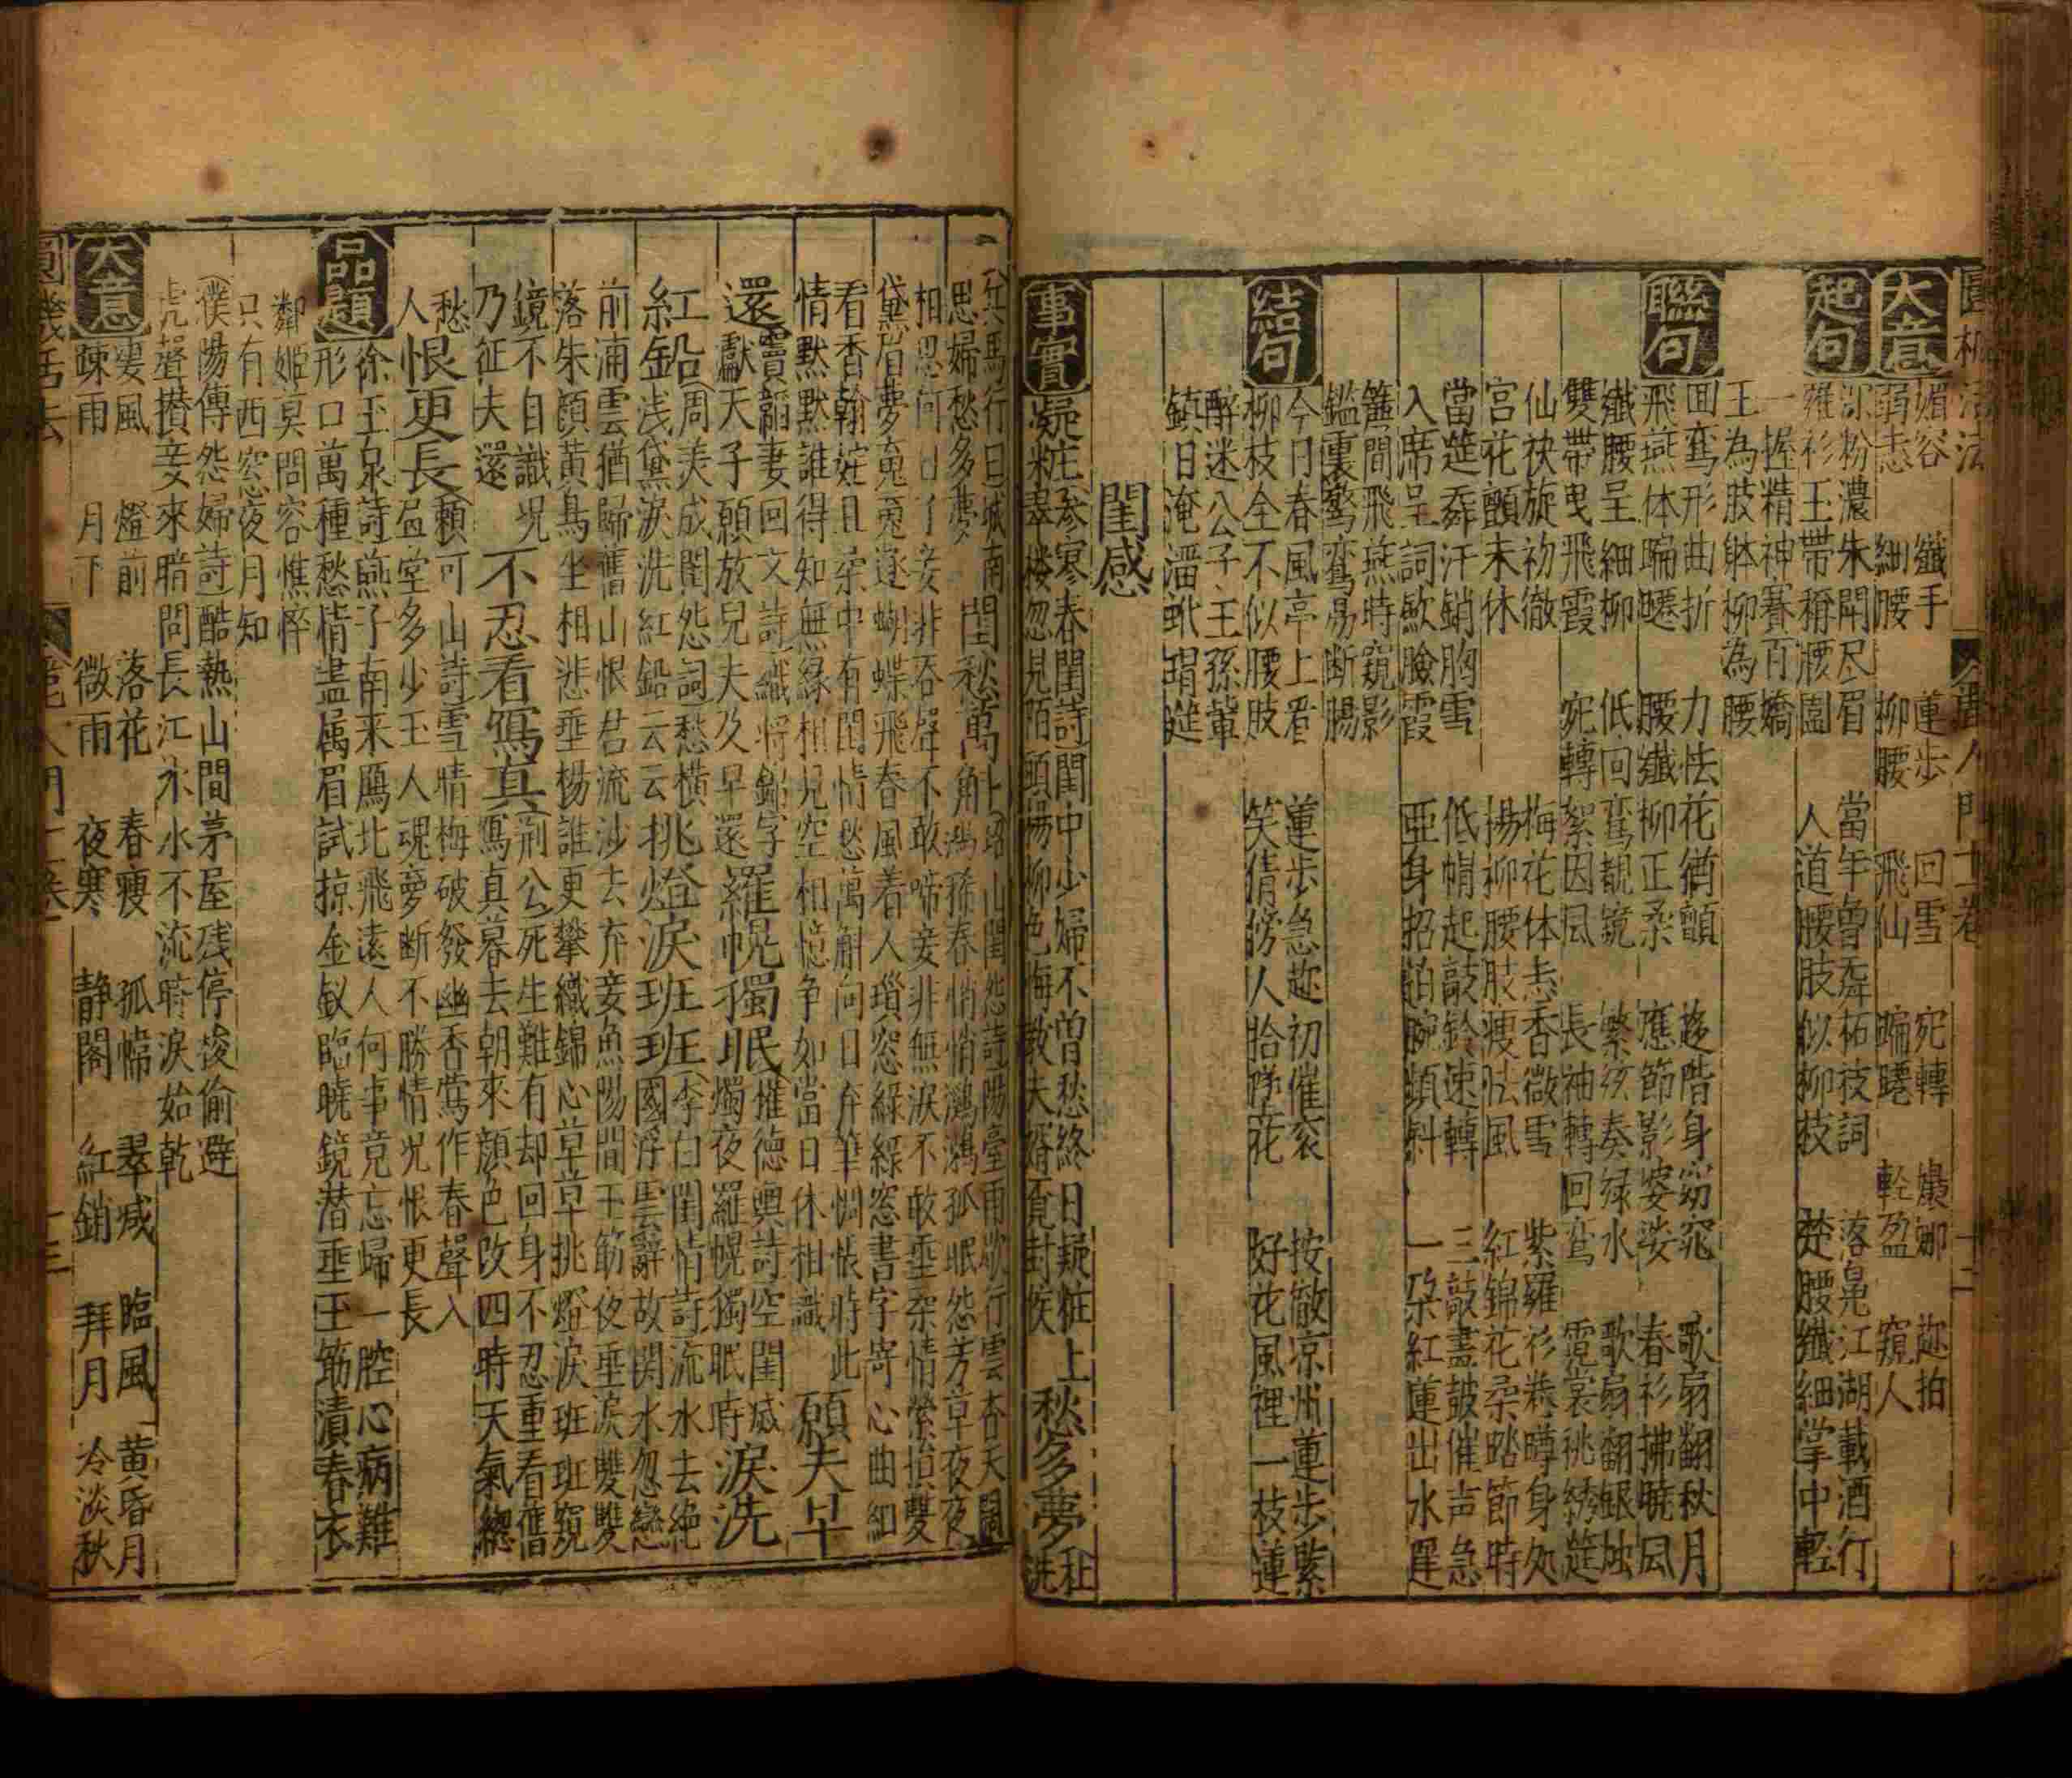 大意
媚容 纖手 蓮步 回雪 宛轉 嬝娜 迩拍
弱态 細腰 柳腰 飛仙 蹁躚 輕盈 窺人
起句
深粉濃朱開尽眉 當年曾舞柘枝詞 落魄江湖載酒行
羅衫玉帶稱腰圍 人道腰肢似柳枝 楚腰纖細掌中輕
一握精神賽百嬌
玉為肢躰柳為腰
聯句
面鸞形曲折 力怯花猶顫 趍階身窈窕 歌扇翻秋月
飛燕体蹁躚 腰纖柳正柔 應節影婆娑 春衫拂曉風
纖腰呈細柳 低回鸞覩鏡 繁絃奏綠水 歌扇翻銀燭
雙帶曳飛霞 宛轉絮因風 長袖轉回鸞 霓裳祧綉筵
仙袂旋初徹 梅花体态香微雪 紫羅衫卷䠣身処
宮花顫未休 揚柳腰肢瘦怯風 紅錦花柔踏節時
當筵舞汗銷胸雪 低帽起敲鈴速轉 三敲畫鼓催声急
入席呈詞歛臉霞 亞身招拍腕頻斜 一朶紅蓮出水遲
簾間飛燕時窺影
鑑裏驚鸞易断腸
結句
今日春風亭上看 蓮步急趂初催衮 按徹凉州蓮步緊
柳枝全不似腰肢 笑倩傍人拾睡花 好花風裡一枝蓮
醉迷公子王孫輩
鎮日淹濇玳瑁筵
閨感
事實
凝庄 參寥春閨詩閨中少婦不曾愁終日凝粧上
粧翠楼忽見陌頭楊柳色悔教夫婿覓封侯 愁多夢
思婦愁多夢 閨愁萬
相思何日了妾非吞聲不敢啼妾非無淚不敢垂柔情縈損雙
黛眉夢魂 逐蝴蝶飛春風着人瑣窓綠綠窓書字寄心曲細
看香翰妮且柔中有閨情愁萬斛何日弃筆惆悵時此
情默默誰得知無緣相見空相憶争如當日休相識 願夫早
還 竇韜妻回文詩織將錦字
獻天子願放兒夫及早還 羅幌獨眠 權德輿詩空閨
燭夜羅幌獨眠時 淚洗
紅鉛 周美成閨怨詞愁橫
浅黛淚洗紅鉛云云 挑燈淚班班 李白閨情詩流水去絶
國浮雲辭故関水忽戀
前浦雲猶歸舊山恨君流沙去弃妾魚陽間玉筯夜垂淚雙雙
落朱顔黃鳥坐相悲垂楊誰更攀織錦心草草挑燈淚班班窺
鏡不自識况
乃征夫還 不忍看寫真 荊公死生難有却回身不忍重看舊
寫真暮去朝來顔色改四時天氣緫
愁
人 恨更長 賴可山詩雪晴梅破發幽香鶯作春聲入
畫堂多少玉人魂夢断不勝情况恨更長
品題
徐玉泉詩燕子南来鴈北飛遠人何事竟忘歸一腔心病難
形口萬種愁情盡属眉試掠金釵臨曉鏡潜垂玉筯漬春衣
鄰姬莫問容憔悴
只有西窓夜月知
僕陽傳怨婦詩酷熱山間茅屋残停梭偷避
虎聲攅妾來暗問長江水水不流時淚始乾
大意
凄風 燈前 落花 春瘦 孤幃 翠减 臨風 黄昏月
踈雨 月下 微雨 夜寒 静閣 紅銷 拜月 冷淡秋